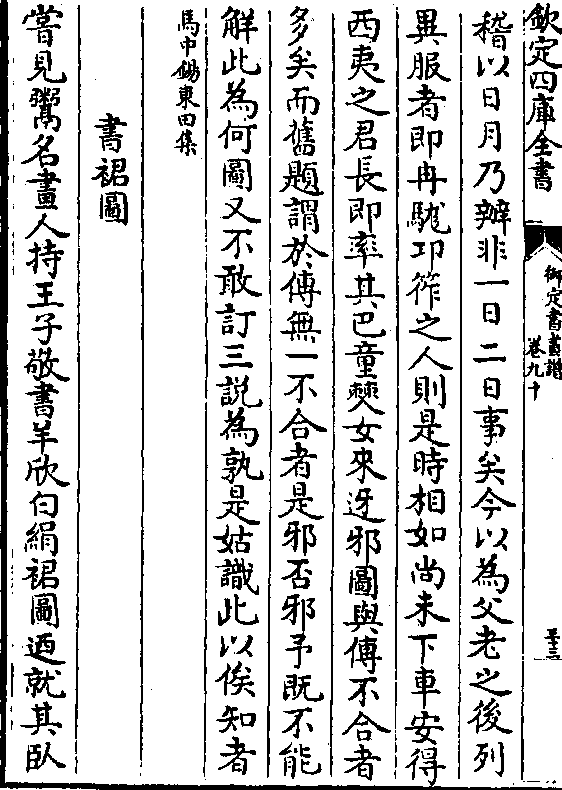 欽定四庫全書
御定書畫譜
卷九十
至三
稽以日月乃辦非一日二日事矣今以為父老之後列
異服者即冉駹邛筰之人則是時相如尚未下車安得
西夷之君長即率其巴童僰女來迓邪圖與傳不合者
多矣而舊題謂於傳無一不合者是邪否邪予既不能
解此為何圖又不敢訂三説為孰是姑識此以俟知者
馬中錫東田集
書裙圖
嘗見鬻名畫人持王子敬書羊欣白絹裙圖廼就其臥